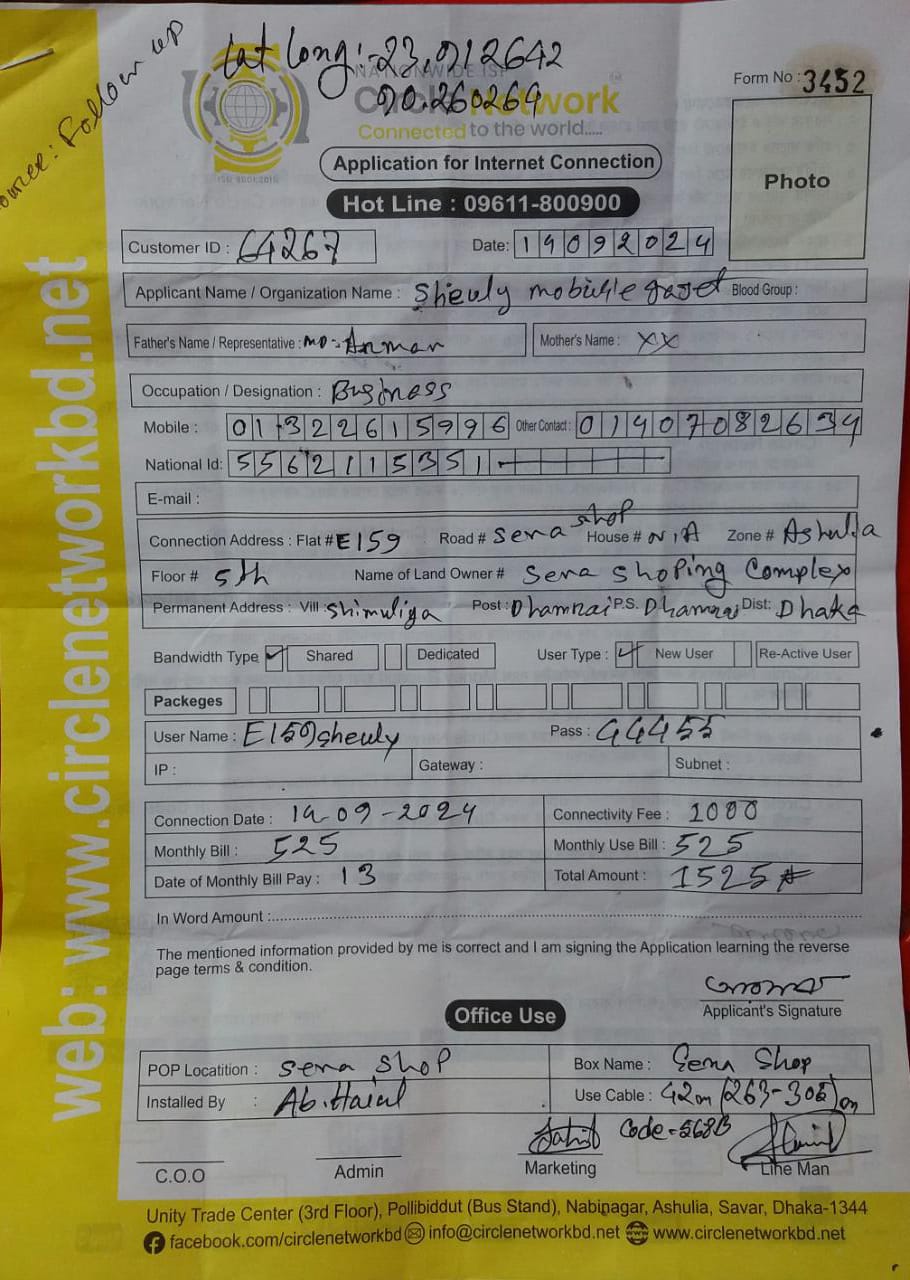 Source: Follow up
Lat Long:-23.912642
90.260269
NATIONWIDE ISP
Circle Network
Connected to the world.....
ISO 9001:2015
Form No : 3452
Photo
Application for Internet Connection
Hot Line : 09611-800900
Customer ID : 64267 Date: 19092024
Applicant Name / Organization Name : Sheuly Blood Group :
Father's Name / Representative : MD:- Mother's Name : XX
Occupation / Designation : Business
Mobile : 01322615996 Other Contact : 01407082634
National Id: 5562115351
E-mail :
Connection Address : Flat # E159 Road # Sena Shop House # N/A Zone # Ashulia
Floor # 5th Name of Land Owner # Sena Shoping Complex
Permanent Address : Vill : Shimuliya Post : Dhamrai P.S. Dhamrai Dist: Dhaka
Bandwidth Type ✓ Shared Dedicated User Type : ✓ New User Re-Active User
Packeges
User Name : E159sheuly Pass : 44455
IP : Gateway : Subnet :
Connection Date : 19-09-2024 Connectivity Fee : 1000
Monthly Bill : 525 Monthly Use Bill : 525
Date of Monthly Bill Pay : 13 Total Amount : 1525
In Word Amount :
The mentioned information provided by me is correct and I am signing the Application learning the reverse
page terms & condition.
Applicant's Signature
Office Use
POP Locatition : Sena Shop Box Name : Sena Shop
Installed By : Use Cable : 42m (263-305)m
Code-568B
C.O.O Admin Marketing Line Man
Unity Trade Center (3rd Floor), Pollibiddut (Bus Stand), Nabinagar, Ashulia, Savar, Dhaka-1344
facebook.com/circlenetworkbd info@circlenetworkbd.net www.circlenetworkbd.net
web: www.circlenetworkbd.net